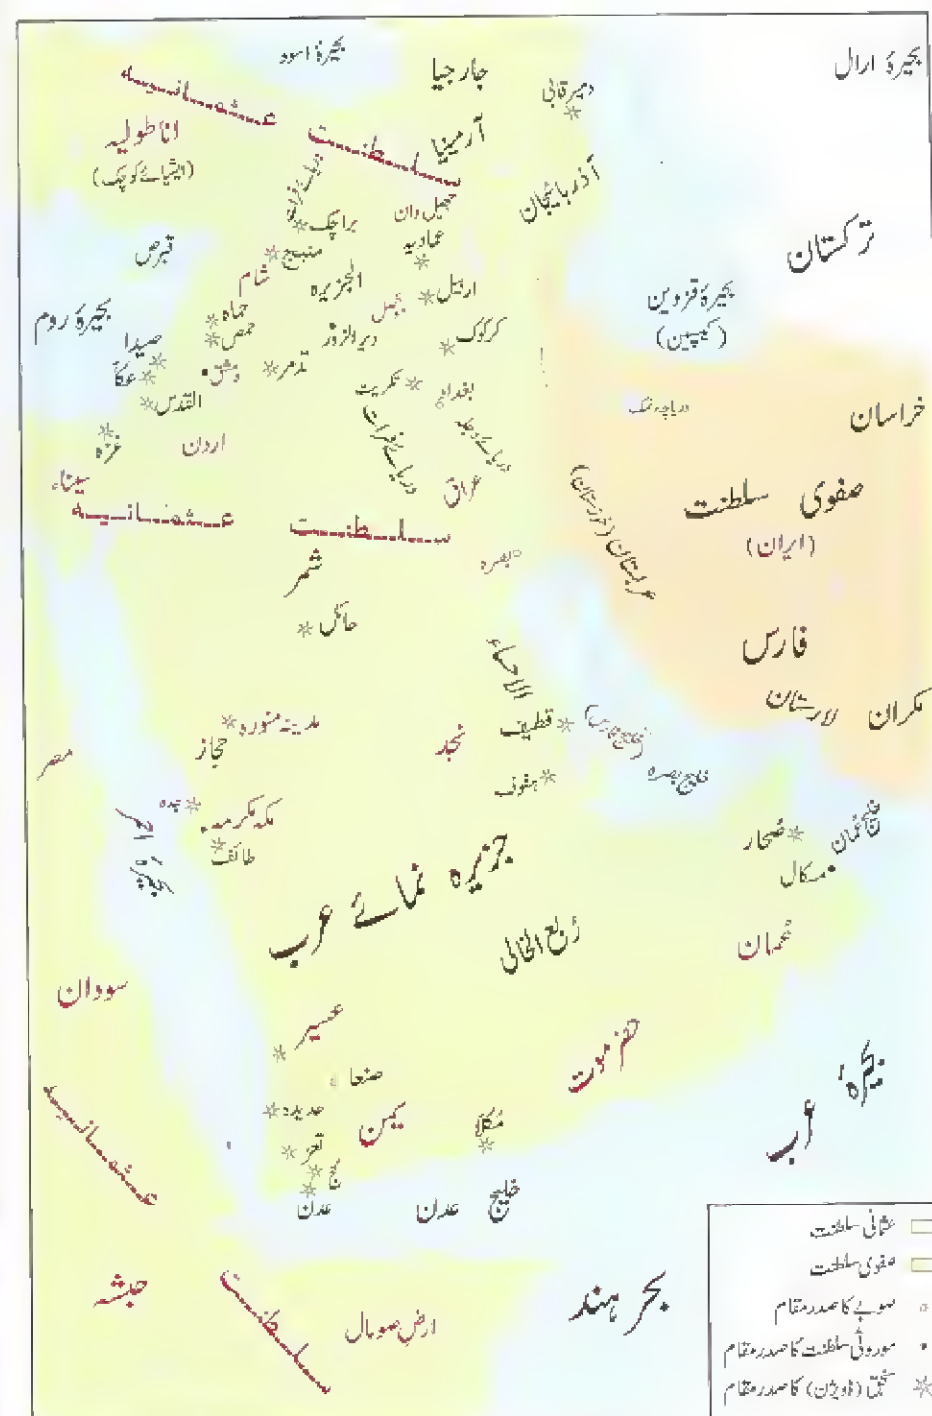 بحیرۂ اسود
جارجیا
بحیرۂ ارال
دمیر قابی
سلطنت عثمانیہ
اناطولیہ
(ایشیائے کوچک)
آرمینیا
آذربائیجان
ترکستان
دریائے فرات
جھیل وان
براچک
عمادیہ
قبرص
منبج
شام
الجزیرہ
اربیل
بحیرۂ قزوین
(کیسپین)
جبل
بحیرۂ روم
حماہ
حمص
دیر الزور
کرکوک
صیدا
عکا
دمشق
تدمر
تکریت
بغداد
دریاچہ نمک
خراسان
القدس
غزہ
اردن
دریائے فرات
دریائے دجلہ
عراق
سیناء
صفوی سلطنت
(ایران)
سلطنت عثمانیہ
عربستان (خوزستان)
شمر
بصرہ
حائل
الاحساء
فارس
لارستان
مکران
مدینہ منورہ
حجاز
نجد
قطیف
(خلیج فارس)
خلیج بصرہ
مصر
ہفوف
جدہ
مکہ مکرمہ
طائف
بحیرۂ احمر
صحار
خلیج عمان
مسکال
جزیرہ نمائے عرب
ربع الخالی
عمان
سودان
عسیر
حضر موت
صنعا
حدیدہ
یمن
مکلا
تعز
لحج
عدن
خلیج عدن
بحیرۂ عرب
سلطنت عثمانیہ
حبشہ
ارض صومال
بحر ہند
عثمانی سلطنت
صفوی سلطنت
صوبے کا صدر مقام
موروثی سلطنت کا صدر مقام
سنجق (ڈویژن) کا صدر مقام